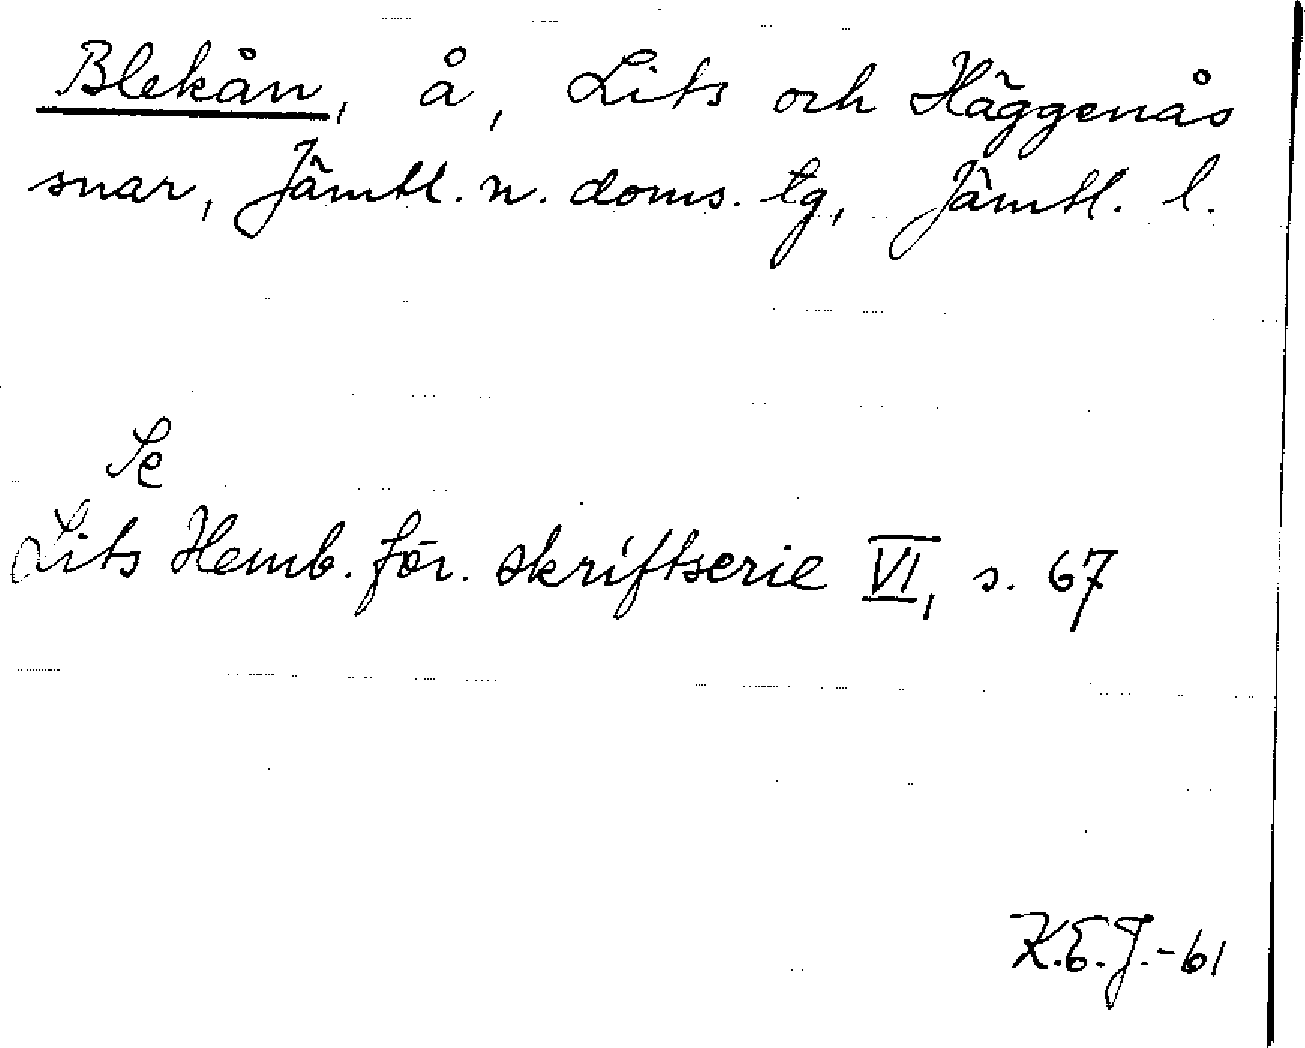 Blekån, å, Lits och Häggenås
snar, Jämtl. n. doms. tg, Jämtl. l.
Se
Lits Hemb. för. skriftserie VI, s. 67
K.E.J.-61